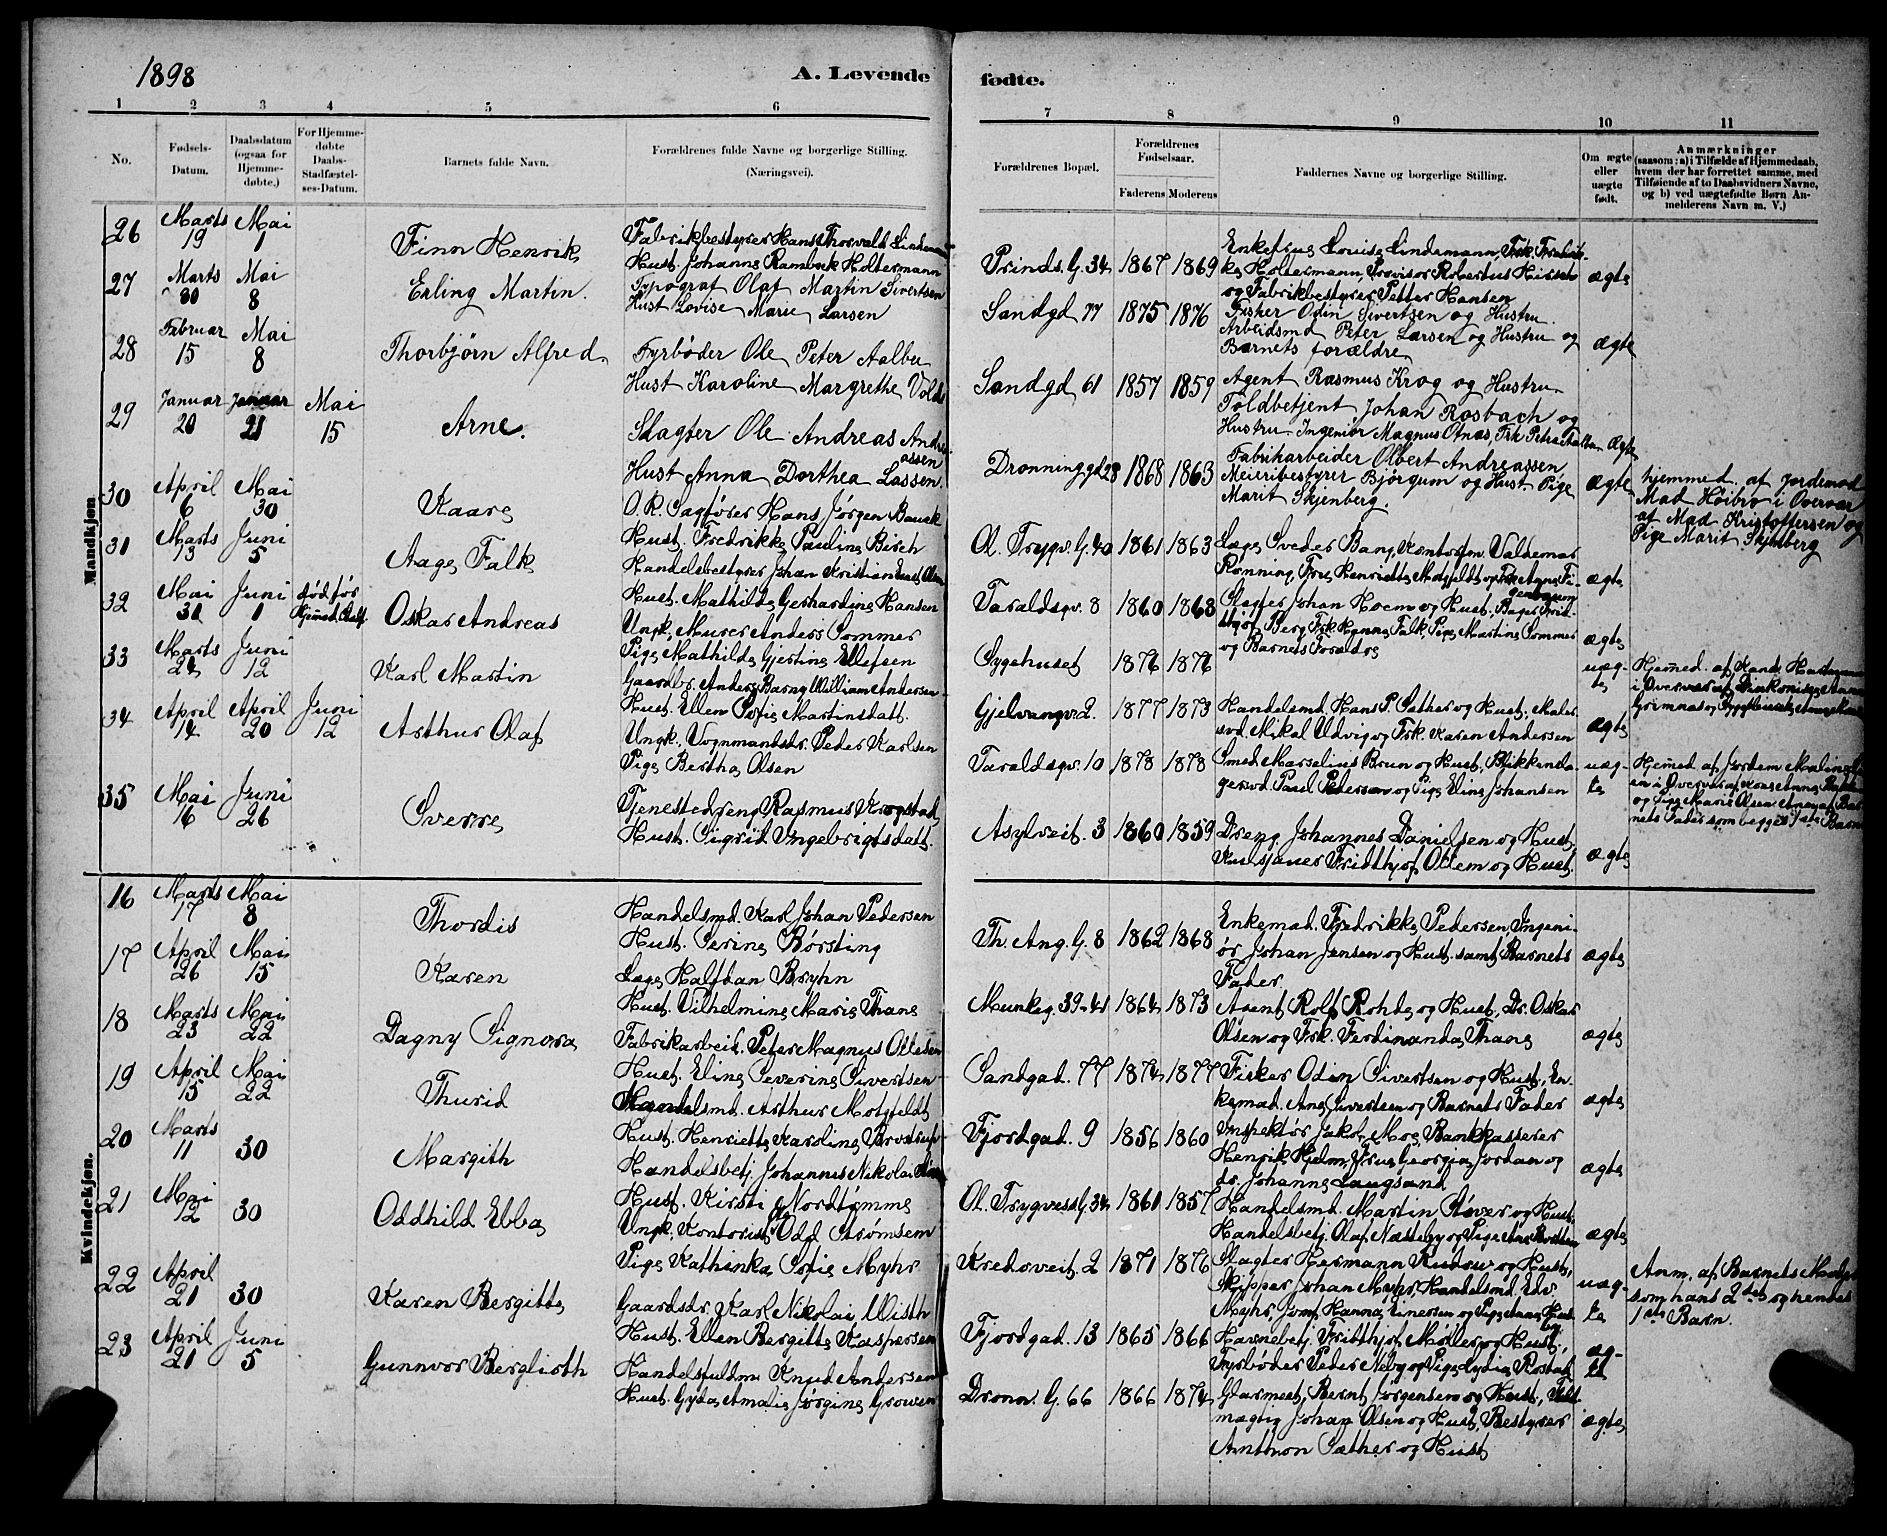 1898
A. Levende fødte.
1 2 3 4 5 6 7 8 9 10 11
No.
Fødsels-Datum.
Daabsdatum (ogsaa for Hjemmedøbte.)
For Hjemmedøbte Daabs-Stadfæstelses-Datum.
Barnets fulde Navn.
Forældrenes fulde Navne og borgerlige Stilling. (Næringsvei).
Forældrenes Bopæl.
Forældrenes Fødselsaar.
Faderens Moderens
Faddernes Navne og borgerlige Stilling.
Om ægte eller uægte født.
Anmærkninger (saasom: a) i Tilfælde af Hjemmedaab, hvem der har forrettet samme, med Tilføiende af to Daabsvidners Navne, og b) ved uægtefødte Børn Anmelderens Navn m. V.)
Mandkjøn
26 Marts 19 Mai 1 Finn Henrik
Fabrikbestyrer Hans Thorvald Lindemann
Hust. Johanne Rambech Holtermann
Prinds. G. 34 1867 1869
Enkefrue Louise Lindemann, Frk. Fredrikke Holtermann, Provisor Robertus Hirsch og Fabrikbestyrer Petter Hansen
ægte
27 Marts 30 Mai 8 Erling Martin.
Typograf Olaf Martin Sivertsen
Hust Lovise Marie Larsen
Sandgd 77 1875 1876
Fisker Odin Sivertsen og Hustru.
Arbeidsmd Peter Larsen og Hustru og
Barnets forældre
ægte
28 Februar 15 Mai 8 Thorbjørn Alfred
Fyrbøder Ole Peter Aalbu
Hust Karoline Margrethe Volds
Sandgd 61 1857 1859
Agent Rasmus Krog og Hustru
Toldbetjent Johan Rosbach og
Hustru Ingeniør Magnus Otnæs, Frk Petra Aalbu
ægte
29 Januar 20 Januar 21 Mai 15 Arne.
Slagter Ole Andreas Andreassen
Hust Anna Dorthea Lassen.
Dronninggd 28 1868 1863
Fabrikarbeider Olbert Andreassen
Meieribestyrer Bjørgum og Hust. Pige
Marit Skjenberg.
ægte
hjemmed. af Jordemod
Mad Høibro i Overvær
af Mad Kristoffersen og
Pige Marit Skjenberg
30 April 6 Mai 30 Kaare
O.R. Sagfører Hans Jørgen Bauck
Hust. Fredrikke Pauline Birch
Ol. Trygv. G. 40 1861 1863
Læge Sveder Bang, Kontorfm. Valdemar
Rønning, Frue Henriette Motzfeldt og Frk. Agnes
ægte
31 Marts 13 Juni 5 Aage Falk
Handelsbestyrer Johan Kristian
Hust. Mathilde Gerhardine Hansen
Taraldsgv. 8 1860 1868
Slagter Johan Hoem og Hust. Bager Fridthjof Berg, Frk Hanna Falk, Pige Martine Sommer
og Barnets Forældre
ægte
32 Mai 31 Juni 1 død før Hjemmed. Stadf. Oskar Andreas
Ungk. Murer Anders Sommer
Pige Mathilde Gjertine Ellefsen
Sygehuset 1876 1876
uægte
Hjemmed. af Kand.
i Overvær af Diakonisse
33 Marts 24 Juni 12 Karl Martin
Gaardbr. Anders Barny William Andersen
Hust. Ellen Sofie Martinsdatt.
Gjelvangv 2. 1877 1873
Handelsmd. Hans P. Sæther og Hust. Maler
svd. Mikal Udvig og Frk. Karen Andersen
ægte
34 April 14 April 20 Juni 12 Arthur Olaf
Ungk. Vognmandsdr. Peder Karlsen
Pige Bertha Olsen
Taraldsgv. 10 1878 1878
Smed Marselius Brun og Hust., Blikkenslagersvd. Paul Pedersen og Pige Eline Johansen
uægte
Hjemmed. af Jordem.
i Overvær af
og Pige Marie Olsen Anm. af Barnets Fader som begges 1ste Barn
35 Mai 16 Juni 26 Sverre
Tjenestedreng Rasmus Krogstad
Hust. Sigrid Ingebrigtsdatt.
Asylveit. 3 1860 1859
Dreng Johannes Danielsen og Hust.
Kulsjauer Fridthjof Ottem og Hust.
ægte
Kvindekjøn.
16 Marts 17 Mai 8 Thordis
Handelsmd. Karl Johan Pedersen
Hust. Serine Børsting
Th. Ang. G. 8 1862 1868
Enkemad. Fredrikke Pedersen, Ingeniør Johan Jensen og Hust. samt Barnets
Fader
ægte
17 April 26 Mai 15 Karen
Læge Halfdan Bryhn
Hust. Vilhelmine Marie Thane
Munkeg. 39-41 1864 1873
Agent Rolf Rohde og Hust, Dr. Oskar
Olsen og Frk. Ferdinanda Thane
ægte
18 Marts 23 Mai 22 Dagny Signora
Fabrikarbeid. Peter Magnus Ottesen
Hust. Eline Severine Sivertsen
Sandgad. 77 1874 1877
Fisker Odin Sivertsen og Hust, Enkemad. Ane Sivertsen og Barnets Fader
ægte
19 April 15 Mai 22 Thurid
Handelsmd. Arthur Motzfeldt
Hust. Henriette Karoline
Fjordgad. 9 1856 1860
Inspektør Jakob Moe, Bankkasserer
Henrik Hjelm, Frue Georgia Jordan og
do. Johanne Laugsand
ægte
20 Marts 11 30 Margith
Handelsbetj. Johannes Nikolai
Hust. Kirsti Nordtømme
Ol. Trygvess G. 34 1861 1857
Handelsmd. Martin Støver og Hust.
Handelsbetj. Olaf Næsteby og Pige
ægte
21 Mai 12 30 Oddhild Ebba
Ungk. Kontorist Odd Strømsem
Pige Kathinka Sofie Myhr
Kredsveit. 2 1871 1876
Slagter Hermann og Hust,
Skipper Johan Myhr, Handelsmd. Edv.
Myhr, Jomf. Hanna Einersen og Pige
uægte
Anm. af Barnets Moder
som hans 2det og hendes
1ste Barn.
22 April 21 30 Karen Bergitte
Gaardsdr. Karl Nikolai Wisth
Hust. Ellen Bergitte Kaspersen
Fjordgad. 13 1865 1866
Havnebetj. Fridthjof Møller og Hust,
Fyrbøder Peder Neby og Pige Lydia Rostad
ægte
23 April 21 Juni 5 Gunnvor Berglioth
Handelsfuldm. Knud Andersen
Hust. Gyda Amalie Jørgine Grouven
Dronn. G. 66 1866 1874
Glarmest. Bernt Jørgensen og Hust, Fuldmægtig Johan Olsen og Hust, Bestyrer
Anthon Sæther og Hust
ægte